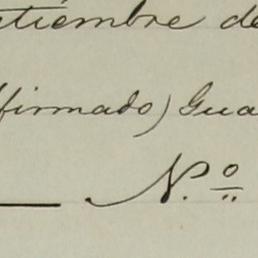 etiembre de
(firmado) Gua
N.º